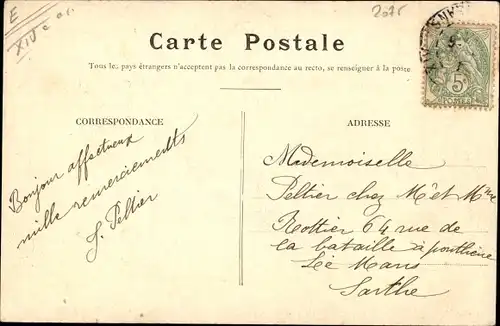 E
XIVe ar.
2075
Carte Postale
Tous les pays étrangers n'acceptent pas la correspondance au recto, se renseigner à la poste
CORRESPONDANCE
ADRESSE
Bonjour affectueux
mille remerciements
J. Peltier
Mademoiselle
Peltier chez Mr et Mme
Rottier 64 rue de
la bataille à
Le Mans
Sarthe
5